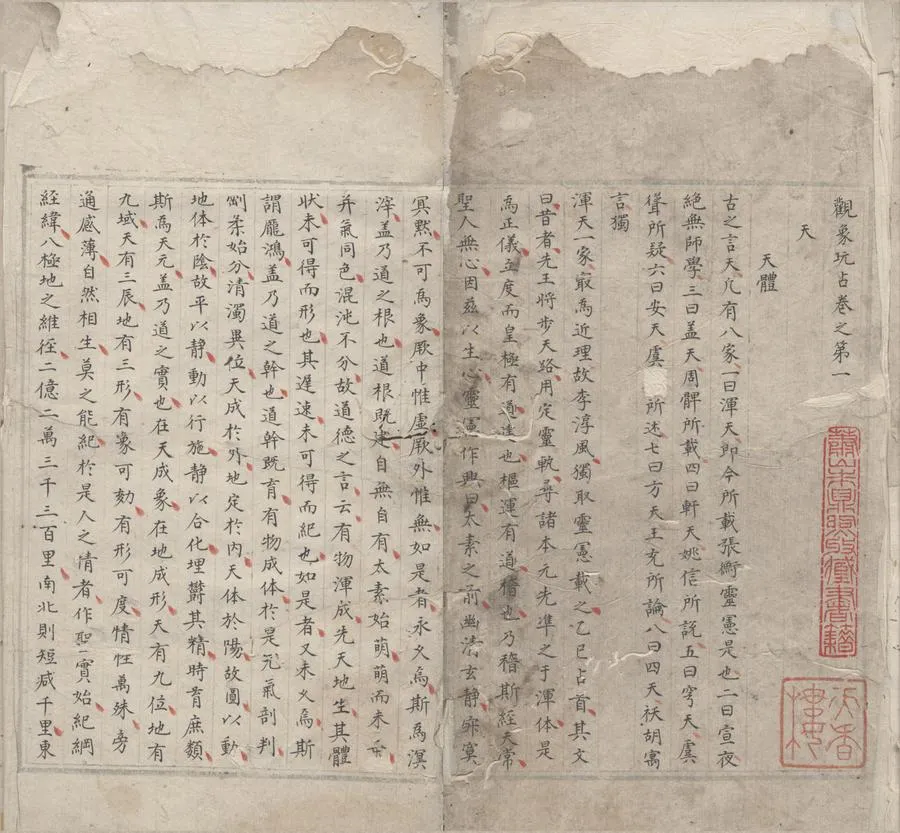 觀象玩占卷之第一
天
天體
古之言天凡有八家一曰渾天即今所載張衡靈憲是也二曰宣夜
絕無師學三曰盖天周髀所載四曰軒天姚信所說五曰穹天虞
聳所疑六曰安天虞 所述七曰方天王充所論八曰四天祅胡寓
言獨
渾天一家㝡為近理故李淳風獨取靈憲載之乙巳占首其文
曰昔者先王將步天路用定靈軌尋諸本元先凖之于渾体是
為正儀立度而皇極有道逹也樞運有道稽也乃稽斯經天常
聖人無心因兹以生心靈憲作興曰太素之前幽清玄静寂寞
冥默不可為象厥中惟虚厥外惟無如是者永乆焉斯為溟
滓盖乃道之根也道根既建自無自有太素始萌萌而未
并氣同色混沌不分故道德之言云有物渾成先天地生其體
狀未可得而形也其遅速未可得而紀也如是者又未乆焉斯
謂龎鴻盖乃道之幹也道幹既育有物成体於是元氣剖判
剛柔始分清濁異位天成於外地定於内天体於陽故圓以動
地体於陰故平以静動以行施静以合化堙欝其精時育庶類
斯為天元盖乃道之實也在天成象在地成形天有九位地有
九域天有三辰地有三形有象可効有形可度情性萬殊旁
通感薄自然相生莫之能紀於是人之情者作聖實始紀綱
經緯八極地之維徑二億二萬三千三百里南北則短减千里東
蕭山朱鼎煦收藏書籍